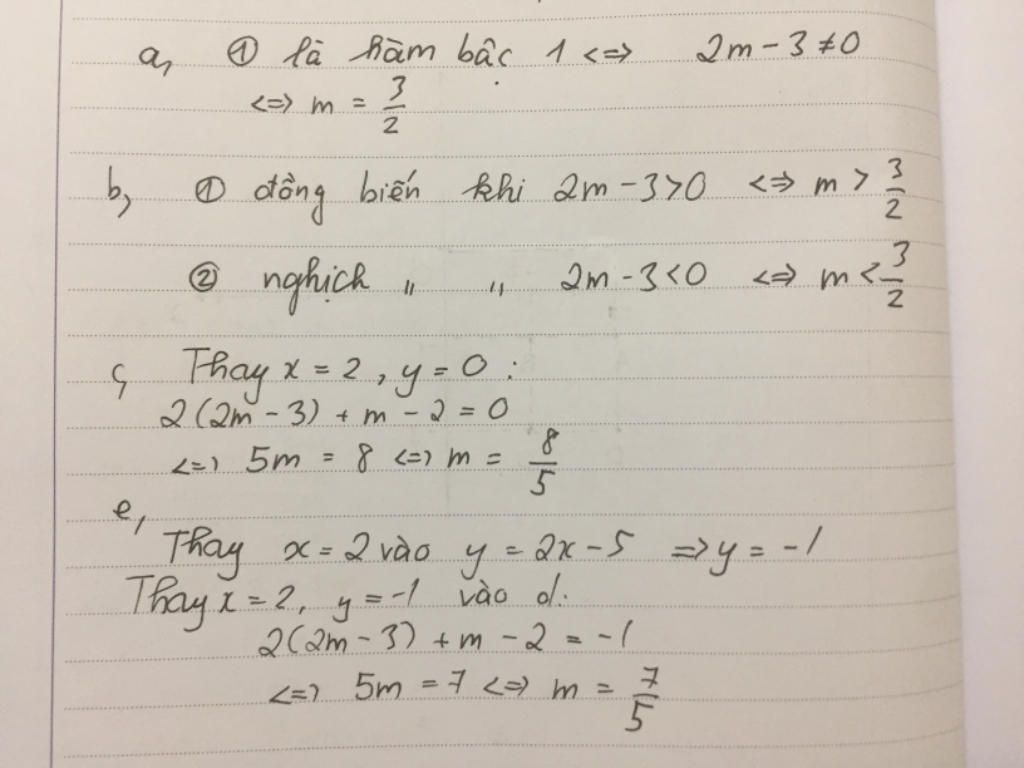 a, ① là hàm bậc 1 <=> 2m - 3 ≠ 0
<=> m = 3/2
b, ① đồng biến khi 2m - 3 > 0 <=> m > 3/2
② nghịch " " 2m - 3 < 0 <=> m < 3/2
c, Thay x = 2, y = 0 :
2(2m - 3) + m - 2 = 0
<=> 5m = 8 <=> m = 8/5
e,
Thay x = 2 vào y = 2x - 5 => y = -1
Thay x = 2, y = -1 vào d:
2(2m - 3) + m - 2 = -1
<=> 5m = 7 <=> m = 7/5